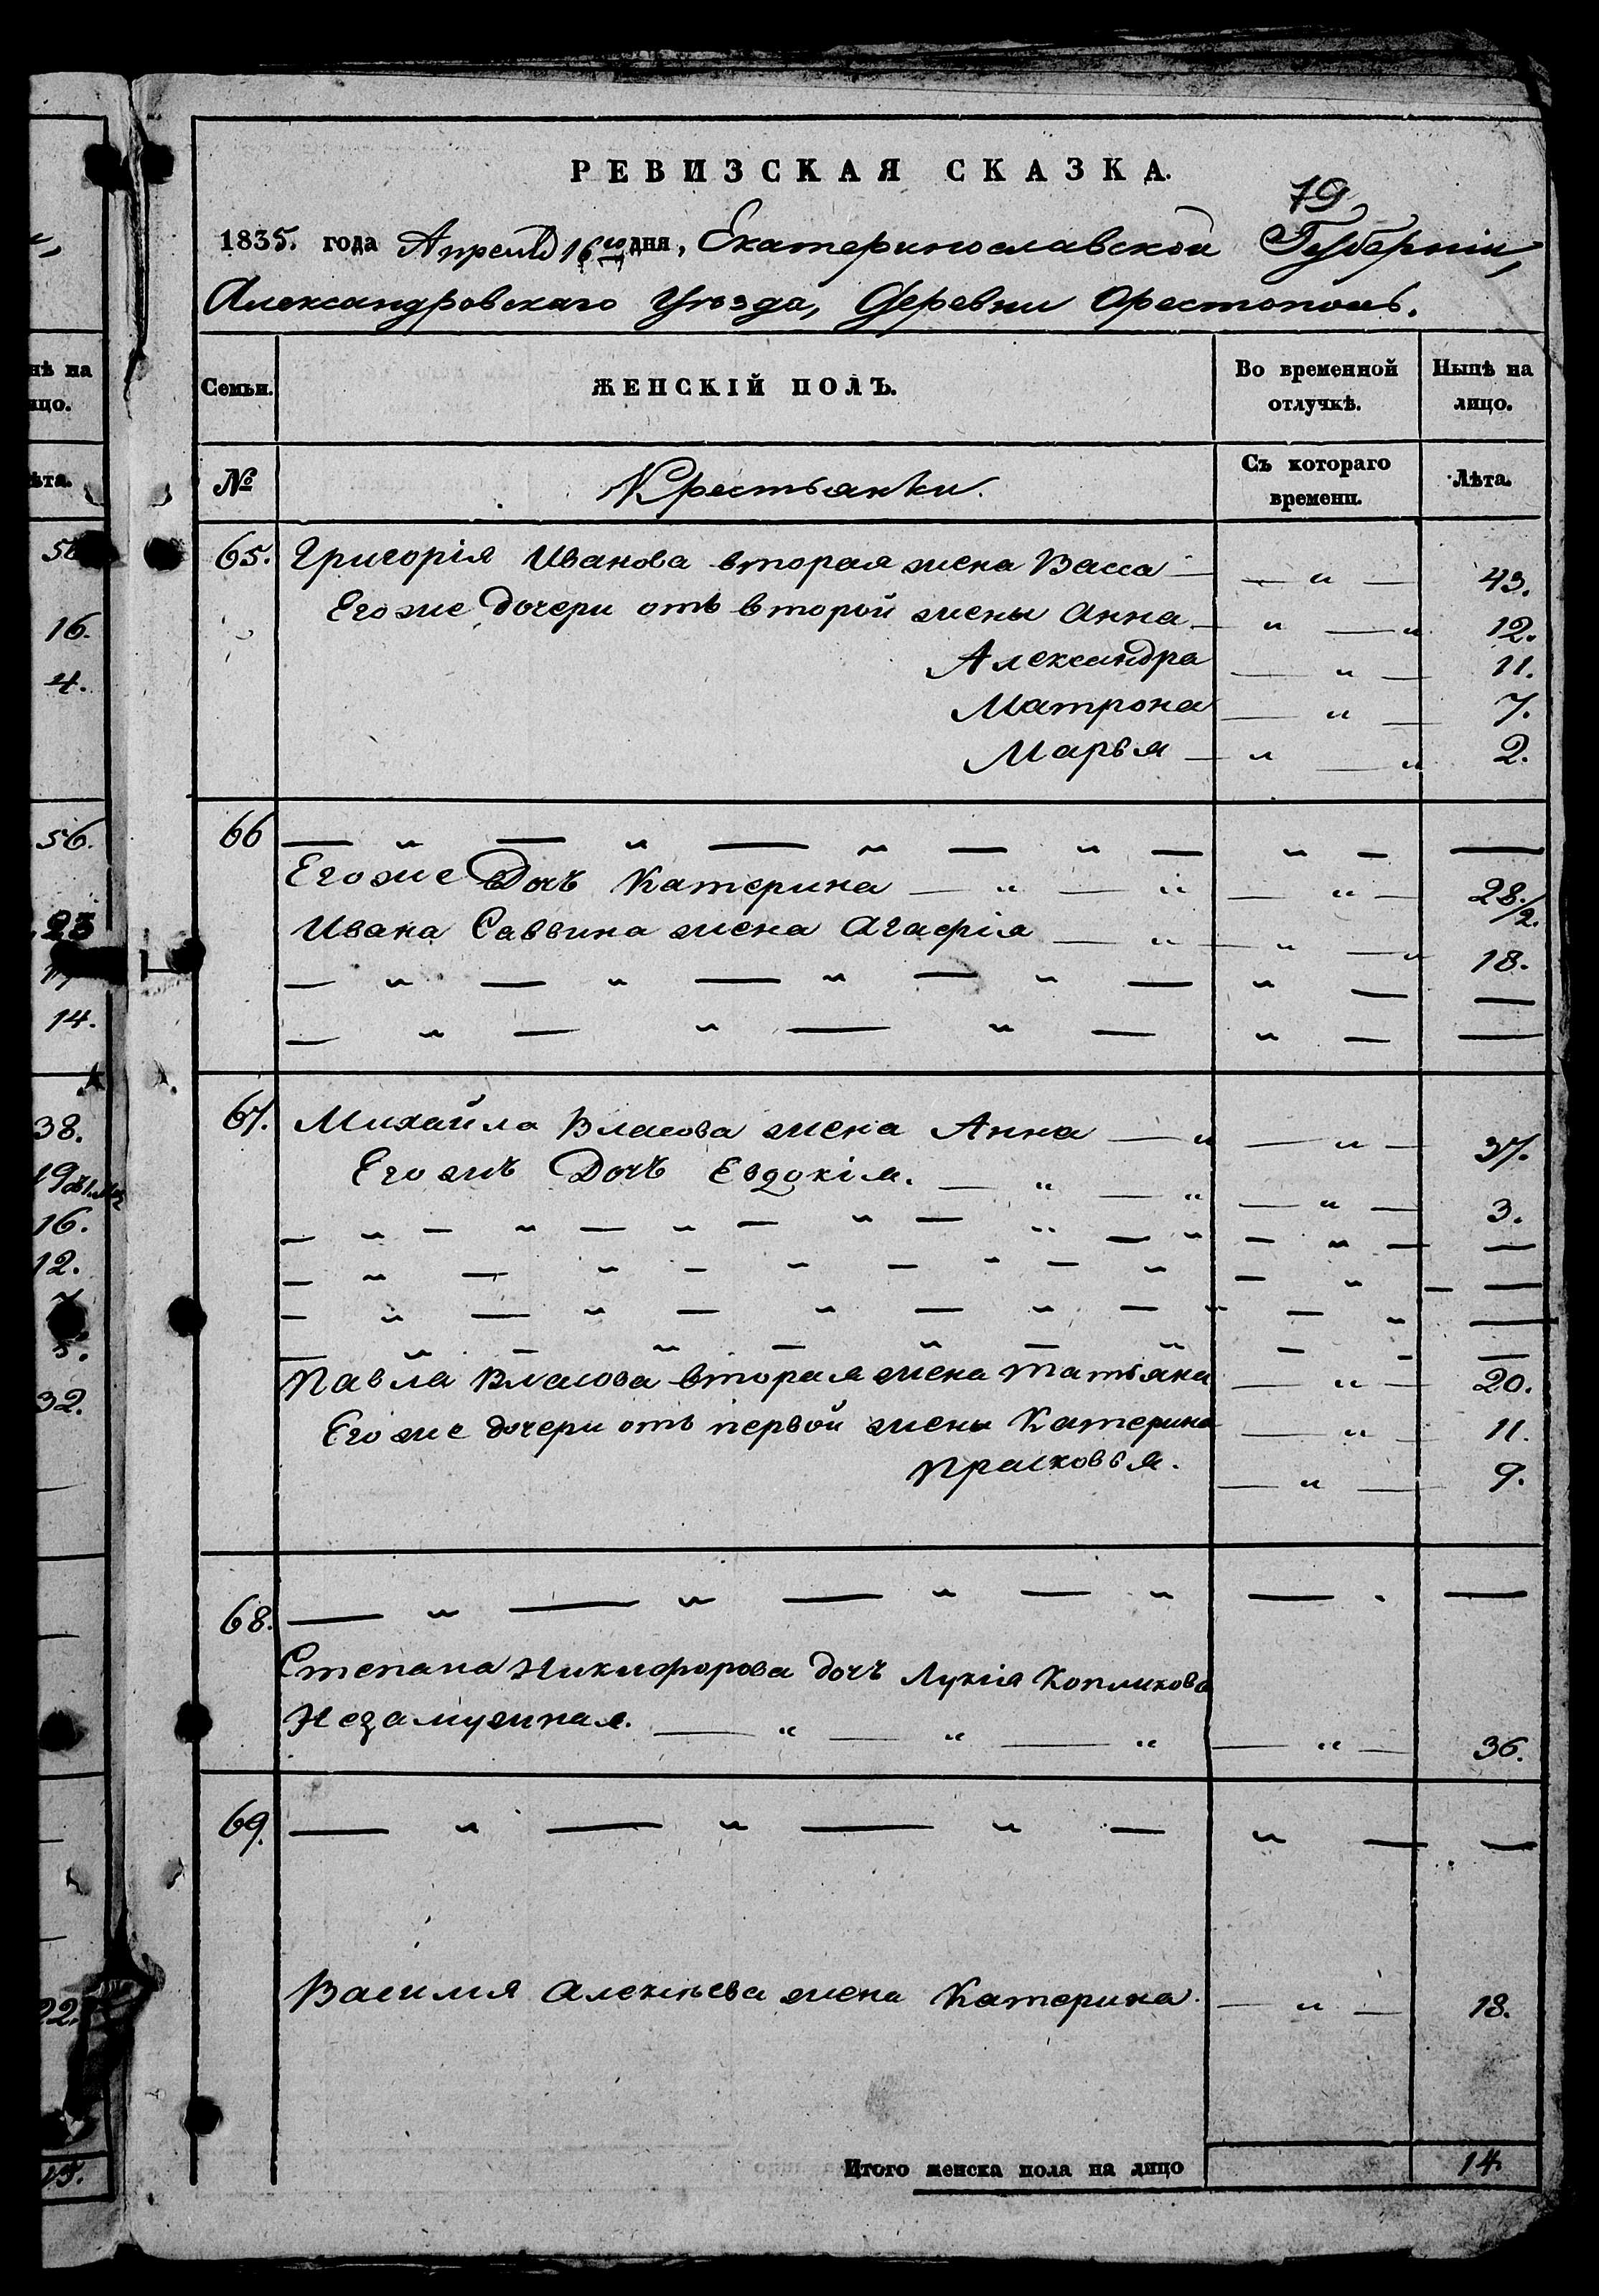 РЕВИЗСКАЯ СКАЗКА.
79
1835. года Апреля 16го дня, Екатеринославской Губернiи,
Александровскаго Уѣзда, Деревни Орестополь.
нѣ на
ицо.
Семьи.
ЖЕНСКIЙ ПОЛЪ.
Во временной отлучкѣ.
Нынѣ на лицо.
ѣта.
№
Крестьянки.
Съ котораго времени.
Лѣта.
65. Григорiя Иванова вторая жена Васса — — „ — 43.
Его же дочери отъ второй жены Анна — „ — „ 12.
Александра — „ — 11.
Матрона — „ — 7.
Марья — „ — „ 2.
66 — „ — „ — „ — „ — „ — —
Его же Дочь Катерина — „ — „ — „ — 28./2.
Ивана Саввина жена Агафiя — „ — „ — „ 18.
— „ — „ — „ — „ — „ — —
— „ — „ — „ — „ — —
67. Михайла Власова жена Анна — „ — „ — 37.
Его жъ Дочь Евдокiя. — „ — „ — „ — 3.
— „ — „ — „ — „ — „ — „ — „ — —
— „ — „ — „ — „ — „ — „ — —
— „ — „ — „ — „ — „ — „ —
— „ — „ — „ — „ — - —
Павла Власова вторая жена Татьяна — „ — 20.
Его же дочери отъ первой жены Катерина — „ — 11.
Прасковья. — „ — 9.
68. — „ — „ — „ — „ — . —
Степана Никифорова дочь Лукiя Копликова
Незамужная. — „ — „ — „ — „ — 36.
69. — „ — „ — „ — „ — —
Василия Алексѣева жена Катерина. — „ — 18.
Итого женска пола на лицо 14.
16.
4.
56.
23
14.
38.
16.
12.
5.
32.
22.
15.